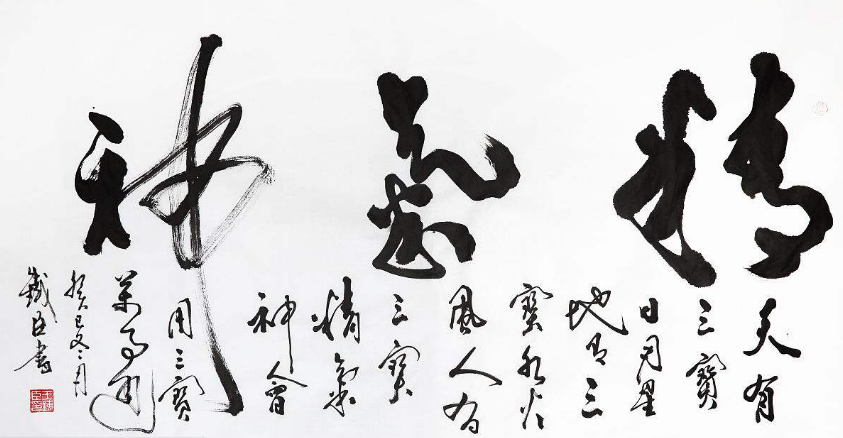 精氣神
天有
三寶
日月星
地有三
寶水火
風人有
三寶
精氣
神會
用三寶
萬事通
癸巳冬月
鐵臣書